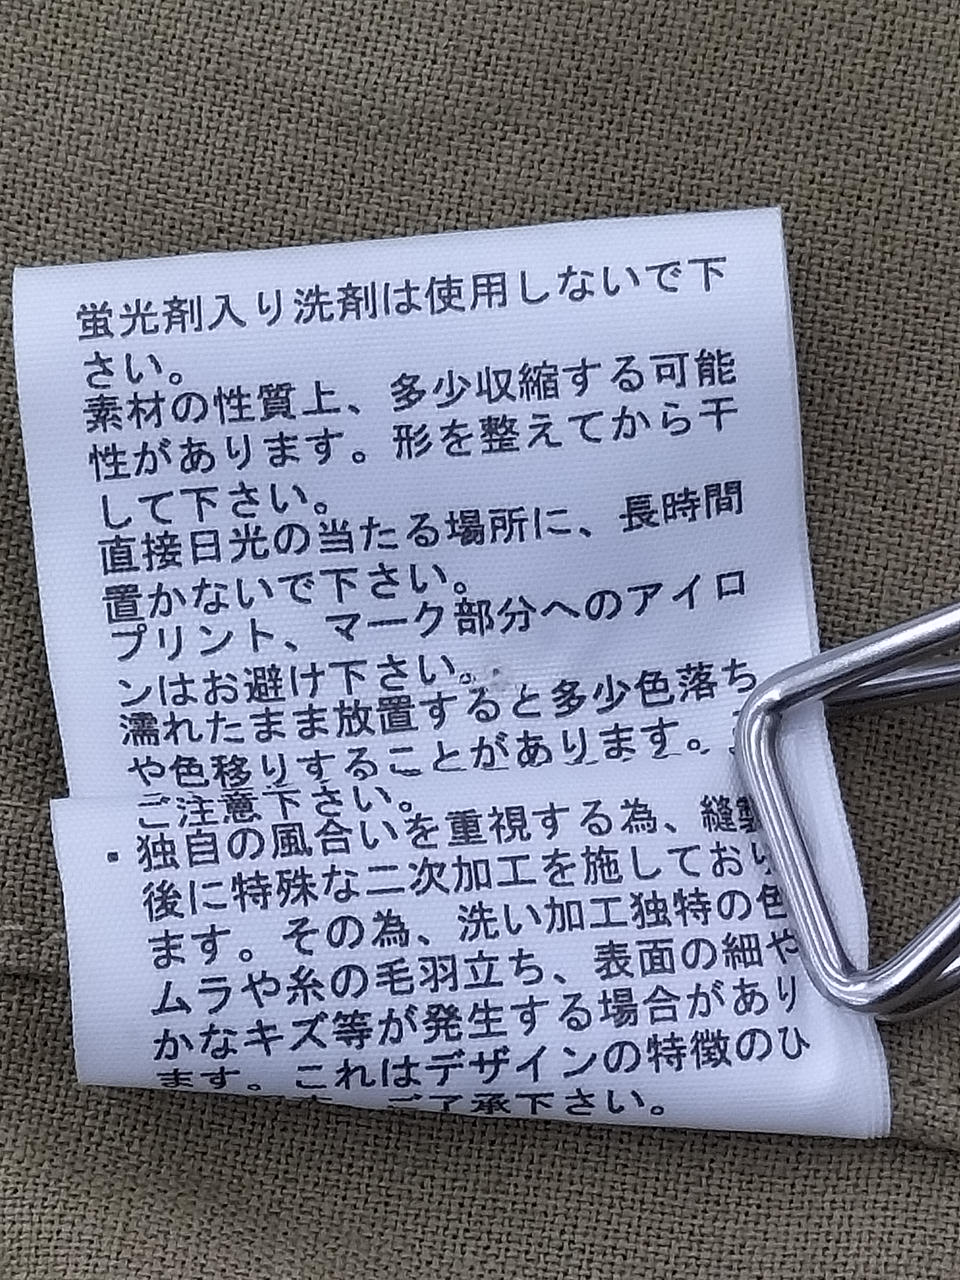 蛍光剤入り洗剤は使用しないで下
さい。
素材の性質上、多少収縮する可能
性があります。形を整えてから干
して下さい。
直接日光の当たる場所に、長時間
置かないで下さい。
プリント、マーク部分へのアイロ
ンはお避け下さい。
濡れたまま放置すると多少色落ち
や色移りすることがあります。
ご注意下さい。
・独自の風合いを重視する為、縫製
後に特殊な二次加工を施しており
ます。その為、洗い加工独特の色
ムラや糸の毛羽立ち、表面の細や
かなキズ等が発生する場合があり
ます。これはデザインの特徴のひ
ご了承下さい。